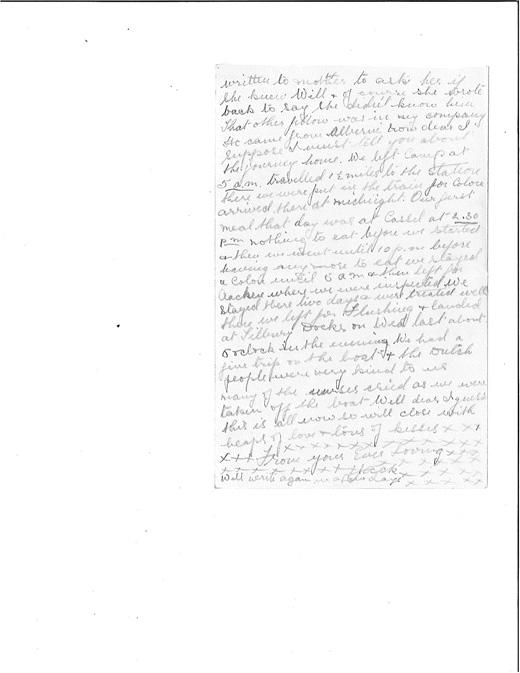 written to mother to ask her if
she knew Will & of course she wrote
back to say she didn't know him
That other fellow was in my company
He came from dear I
suppose I must tell you about
the journey home. We left Camp at
5 a.m. travelled 1 miles to the station
there we were put in the train for Colone
arrived there at midnight. Our first
meal that day was at Cassel at 2.30
p.m nothing to eat before we started
& then we went until 10 p.m before
having any more to eat we stayed
a Colone until 6 a m & then left for
where we were inspected We
stayed there two days & were treated well
there we left for Flushing & landed
at Tilbury Docks on Wed last about
5 oclock in the evening We had a
fine trip on the boat & the Dutch
people were very kind to us
many of the nurses cried as we were
taken off the boat Well dear I guess
this is all now so will close with
heaps of love & tons of kisses x x x
x x x x x x x x x x x
x x x From your Ever Loving x x x
x x x x x x x x x x x
Will write again in a few days x x x